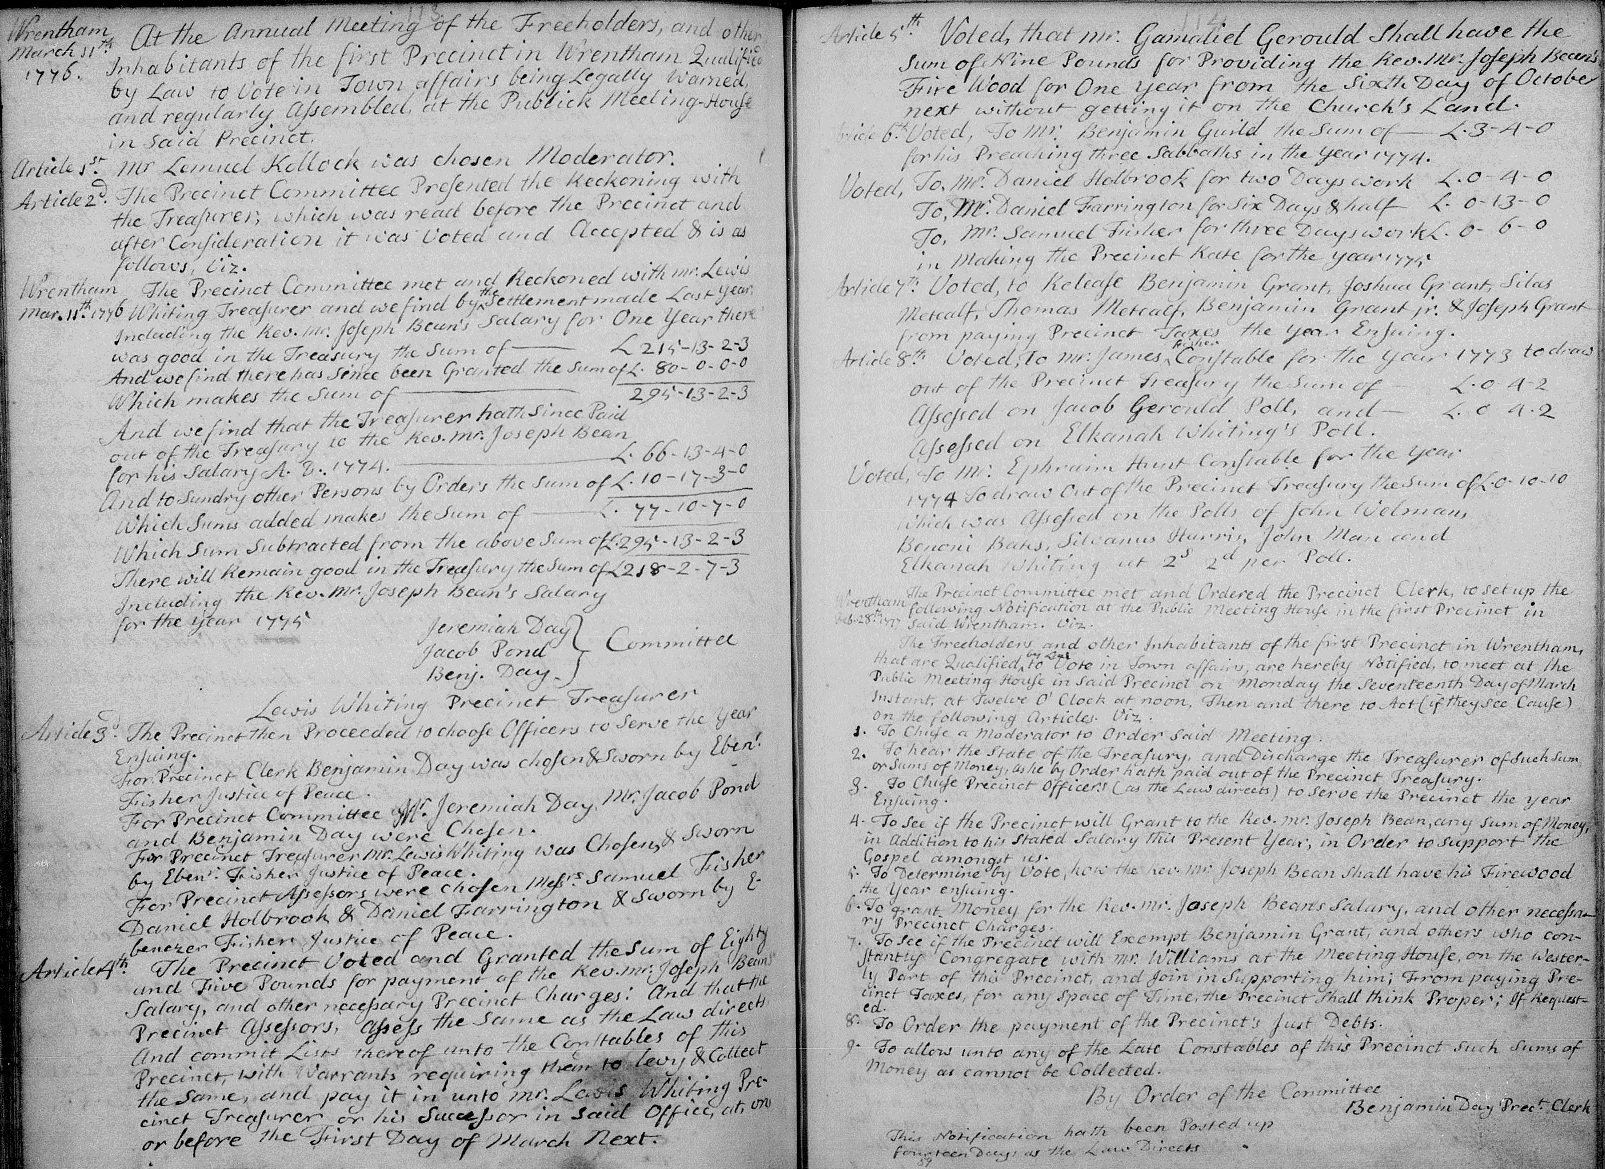 113
Wrentham
March 11th
1776.
At the Annual Meeting of the Freeholders, and other
Inhabitants of the first Precinct in Wrentham Qualified
by Law to Vote in Town affairs being Legally Warned,
and regularly Assembled, at the Publick Meeting-House
in Said Precinct.
Article 1st. Mr Lemuel Kollock was chosen Moderator.
Article 2d. The Precinct Committee Presented the Reckoning with
the Treasurer; which was read before the Precinct and
after Consideration it was Voted and Accepted & is as
follows, Viz.
Wrentham
Mar. 11th. 1776
The Precinct Committee met and Reckoned with mr. Lewis
Whiting Treasurer and we find by the Settlement made Last year,
Including the Rev. mr. Joseph Bean's Salary for One Year there
was good in the Treasury the Sum of — £ 215-13-2-3
And we find there has Since been Granted the Sum of £. 80-0-0-0
Which makes the Sum of — 295-13-2-3
And we find that the Treasurer hath Since Paid
out of the Treasury to the Rev. mr. Joseph Bean
for his Salary A. D. 1774. — £. 66-13-4-0
And to Sundry other Persons by Orders the Sum of £. 10-17-3-0
Which Sums added makes the Sum of — £. 77-10-7-0
Which Sum Subtracted from the above Sum of £295-13-2-3
There will Remain good in the Treasury the Sum of £218-2-7-3
Including the Rev. Mr. Joseph Bean's Salary
for the year 1775
Jeremiah Day
Jacob Pond
Benj. Day
} Committee
Lewis Whiting Precinct Treasurer
Article 3d. The Precinct then Proceeded to choose Officers to Serve the year
Ensuing.
For Precinct Clerk Benjamin Day was chosen & Sworn by Ebenr.
Fisher Justice of Peace.
For Precinct Committee Mr. Jeremiah Day, Mr. Jacob Pond
and Benjamin Day were Chosen.
For Precinct Treasurer Mr. Lewis Whiting was Chosen, & Sworn
by Ebenr. Fisher Justice of Peace.
For Precinct Assessors were chosen Messrs Samuel Fisher
Daniel Holbrook & Daniel Farrington & Sworn by E-
benezer Fisher Justice of Peace.
Article 4th. The Precinct Voted and Granted the Sum of Eighty
and Five Pounds for payment of the Rev. mr. Joseph Bean's
Salary, and other necessary Precinct Charges: And that the
Precinct Assessors, assess the Same as the Law directs
And commit Lists thereof unto the Constables of this
Precinct, with Warrants requiring them to levy & Collect
the Same, and pay it in unto mr. Lewis Whiting Pre-
cinct Treasurer or his Successor in Said Office, at, on
or before the First Day of March Next.
114
Article 5th. Voted, that mr. Gamaliel Gerould Shall have the
Sum of Nine Pounds for Providing the Rev. Mr. Joseph Bean's
Fire Wood for One year from the Sixth Day of October
next without getting it on the Church's Land.
Article 6th. Voted, To Mr. Benjamin Guild the Sum of — £.3-4-0
for his Preaching three Sabbaths in the year 1774.
Voted, To, Mr. Daniel Holbrook for two Days work £. 0-4-0
To, Mr. Daniel Farrington for Six Days & half £. 0-13-0
To, Mr. Samuel Fisher for three Days work £. 0-6-0
in Making the Precinct Rate for the year 1775
Article 7th. Voted, to Release Benjamin Grant, Joshua Grant, Silas
Metcalf, Thomas Metcalf, Benjamin Grant jr. & Joseph Grant
from paying Precinct Taxes the year Ensuing.
Article 8th Voted, To mr. James Fisher Constable for the year 1773 to draw
out of the Precinct Treasury the Sum of — £.0 4-2
Assessed on Jacob Gerould Poll, and — £. 0 4-2
Assessed on Elkanah Whiting's Poll.
Voted, To Mr. Ephraim Hunt Constable for the year
1774 To draw Out of the Precinct Treasury the Sum of £.0-10-10
Which was Assessed on the Polls of John Welman,
Benoni Bates, Silvanus Harris, John Man and
Elkanah Whiting at 2s 2d per Poll.
Wrentham
Feb. 28th. 1777
The Precinct Committee met and Ordered the Precinct Clerk, to set up the
following Notification at the Public Meeting House in the first Precinct in
Said Wrentham. Viz.
The Freeholders and other Inhabitants of the first Precinct in Wrentham,
that are Qualified, by Law to Vote in Town affairs, are hereby Notified, to meet at the
Public Meeting House in Said Precinct on Monday the Seventeenth Day of March
Instant, at Twelve O'Clock at noon, Then and there to Act (if they see Cause)
on the following Articles. Viz.
1. To Chuse a Moderator to Order Said Meeting.
2. To hear the State of the Treasury, and Discharge the Treasurer of Such Sum
or Sums of Money, as he by Order hath paid out of the Precinct Treasury.
3. To Chuse Precinct Officers (as the Law directs) to Serve the Precinct the year
Ensuing.
4. To See if the Precinct will Grant to the Rev. mr. Joseph Bean, any Sum of Money,
in Addition to his Stated Salary this Present Year, in Order to Support the
Gospel amongst us.
5. To Determine by Vote, how the Rev. mr. Joseph Bean Shall have his Firewood
the Year ensuing.
6. To grant Money for the Rev. mr. Joseph Bean's Salary, and other necessa-
ry Precinct Charges.
7. To See if the Precinct will Exempt Benjamin Grant, and others who con-
stantly Congregate with mr. Williams at the Meeting House, on the Wester-
ly Part of this Precinct, and Join in Supporting him; From paying Pre-
cinct Taxes, for any Space of Time, the Precinct Shall think Proper; If Request-
ed.
8. To Order the payment of the Precinct's Just Debts.
9. To allow unto any of the Late Constables of this Precinct such Sums of
Money as cannot be Collected.
By Order of the Committee
Benjamin Day Prect. Clerk
This Notification hath been Posted up
fourteen Days as the Law Directs
59